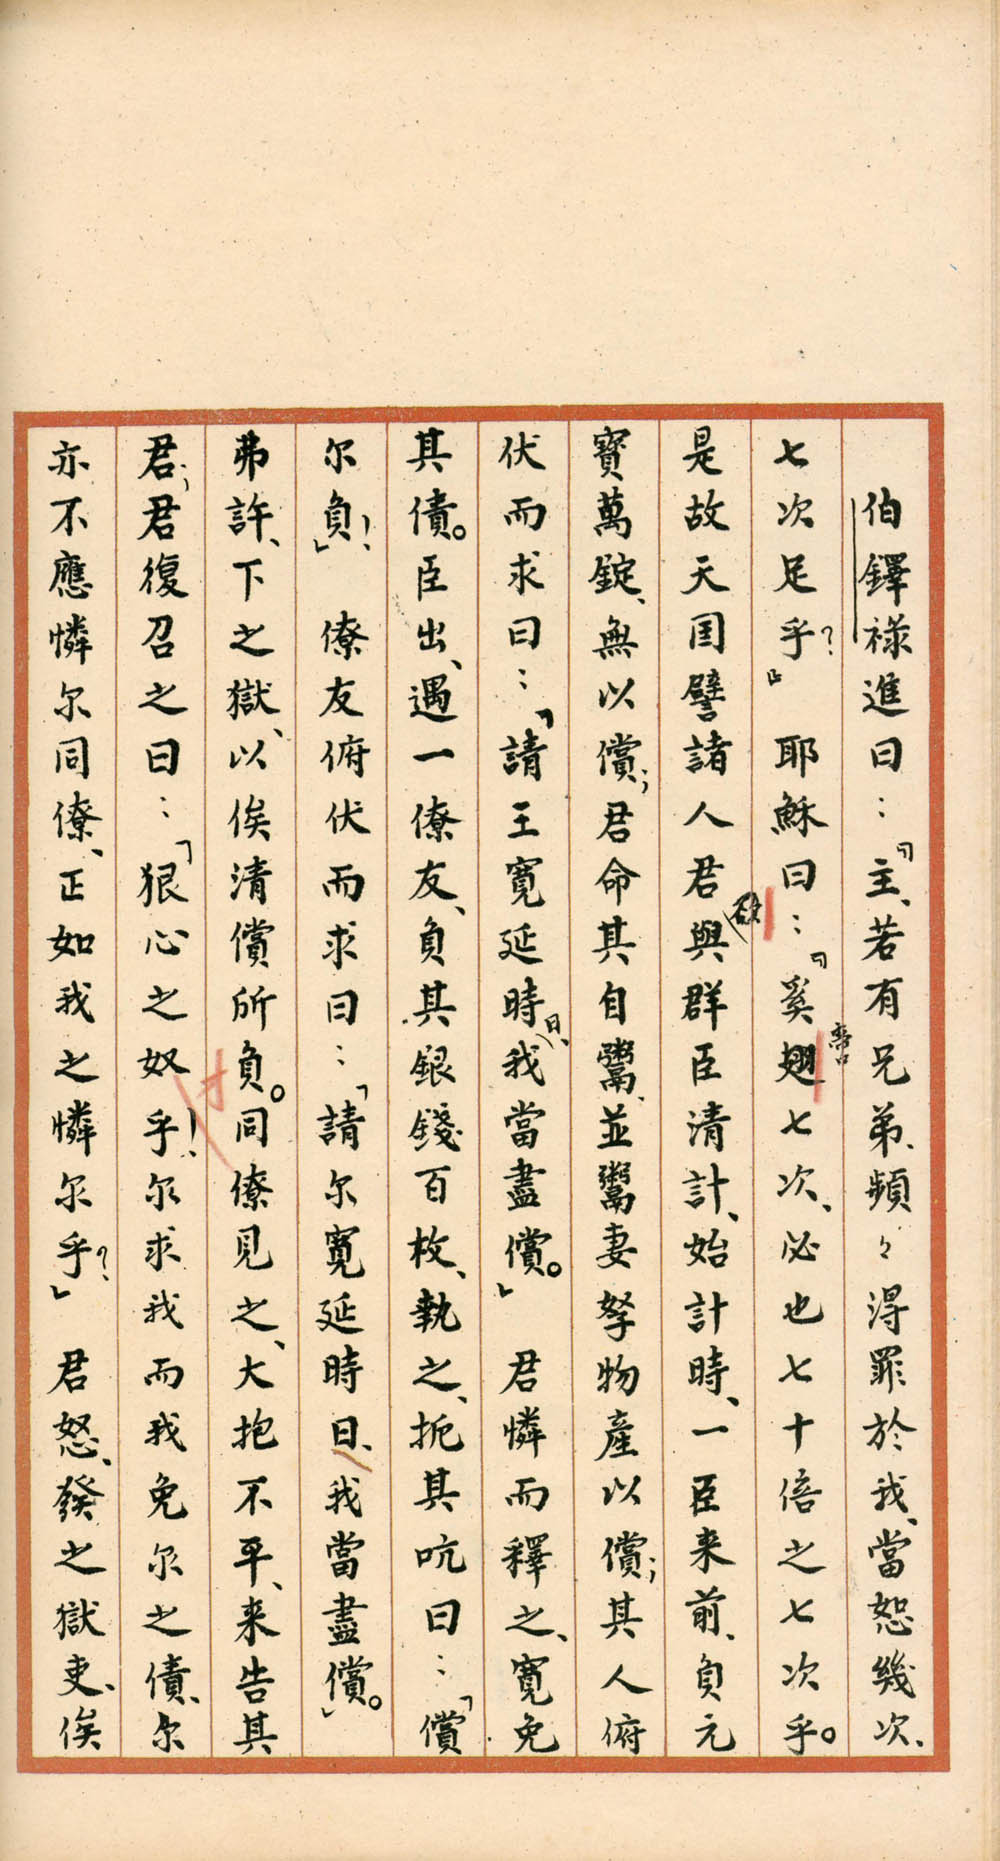 伯鐸祿進曰：『主、若有兄弟、頻々得罪於我、當恕幾次、
七次足乎？』耶穌曰：『奚翅七次、必也七十倍之七次乎。
啻
是故天国譬諸人君與群臣清計、始計時、一臣来前、負元
寳萬錠、無以償；君命其自鬻、並鬻妻孥物產以償；其人俯
伏而求曰：「請王寬延時日、我當盡償。」君憐而釋之、寬免
其債。臣出、遇一僚友、負其銀錢百枚、執之、扼其吭曰：「償
尔負！」僚友俯伏而求曰：「請尔寬延時日、我當盡償。」
弗許、下之獄、以俟清償所負。同僚見之、大抱不平、来告其
君；君復召之曰：「狠心之奴乎！尔求我而我免尔之債、尔
亦不應憐尔同僚、正如我之憐尔乎？」君怒、發之獄吏、俟